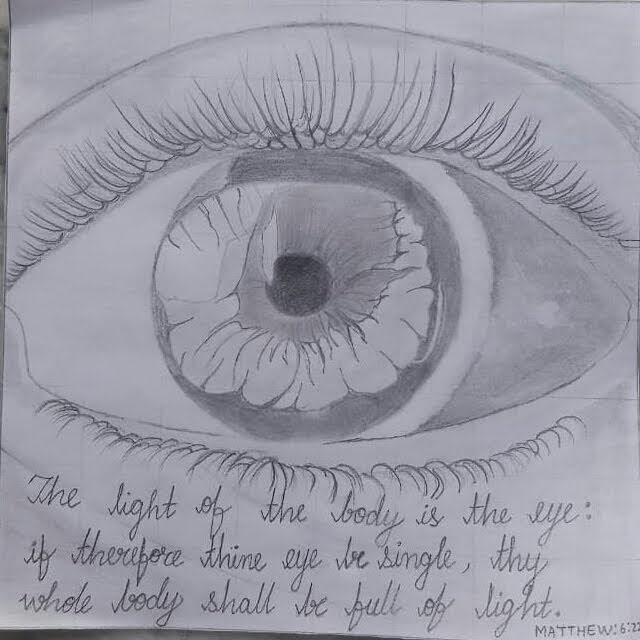 The light of the body is the eye:
if therefore thine eye be single, thy
whole body shall be full of light.
MATTHEW:6:22